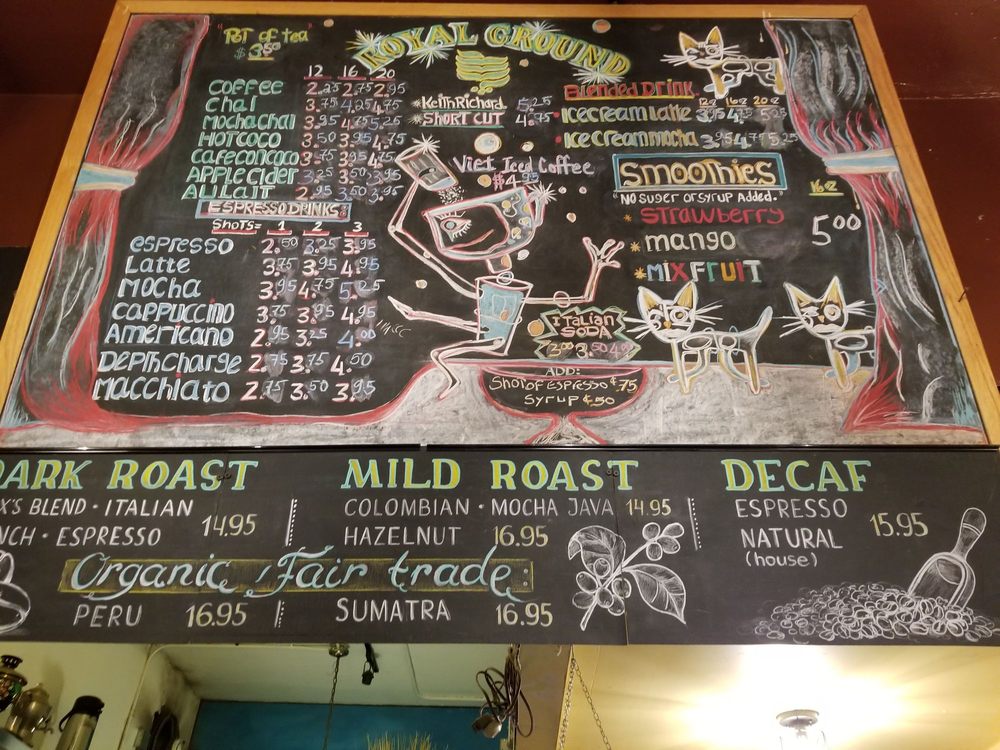 "POT of tea"
$3.50
ROYAL GROUND
12 16 20
COFFEE 2.25 2.75 2.95
Chai 3.75 4.25 4.75
MochaChai 3.95 4.75 5.25
HOTCOCO 3.50 3.95 4.75
cafeconcoco 3.75 3.95 4.75
APPLE cider 3.25 3.50 3.95
AULait 2.95 3.50 3.95
*KeithRichard 5.25
*SHORT CUT 4.75
Viet Iced Coffee
$4.95
Blended Drink.
12oz 16oz 20oz
icecreamlatte 3.95 4.75 5.25
ice creammocha 3.95 4.75 5.25
SMOOTHiES
"No suger or syrup Added.
16oz
*STRAWBERRY
*mango 5.00
*MiXFRUIT
ESPRESSO DRINKS:
SHOTS= 1 2 3
espresso 2.50 3.25 3.95
Latte 3.75 3.95 4.95
Mocha 3.95 4.75 5.25
cappuccino 3.75 3.95 4.95
Americano 2.95 3.25 4.00
DepthCharge 2.75 3.75 4.50
Macchiato 2.75 3.50 3.95
iTaLian
SODA
3.00 3.50 4.25
ADD:
Shot of Espresso .75
Syrup .50
DARK ROAST
X'S BLEND · ITALIAN
NCH · ESPRESSO
14.95
MILD ROAST
COLOMBIAN · MOCHA JAVA 14.95
HAZELNUT 16.95
DECAF
ESPRESSO
NATURAL
(house)
15.95
Organic, Fair trade:
PERU 16.95
SUMATRA 16.95